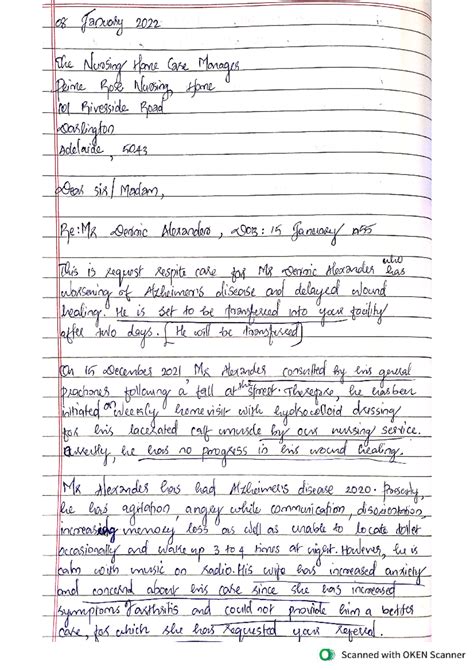 08 January 2022
The Nursing Home Care Manager
Prime Rose Nursing Home
101 Riverside Road
Darlington
Adelaide, 5043
Dear Sir/Madam,
Re: Mr Derinic Alexanders, DOB: 15 January 1955
This is request respite care for Mr Derinic Alexander who has
worsening of Alzheimer's disease and delayed wound
healing. He is set to be transferred into your facility
after two days. [He will be transferred]
On 15 December 2021, Mr Alexander consulted by his general
practioner following a fall at the street. Therefore, he has been
initiated on weekly home visit with hydrocolloid dressing
for his lacerated calf muscle by our nursing service.
he has no progress in his wound healing.
Mr Alexander has had Alzheimer's disease 2020.
he has agitation, angry while communication, disorientation,
increasing memory loss as well as unable to locate toilet
occasionally and wake up 3 to 4 times at night. However, he is
calm with music on radio. His wife has increased anxiety
and concerned about his care since she has increased
symptoms of arthritis and could not provide him a better
care, for which she has requested your referral.
Scanned with OKEN Scanner